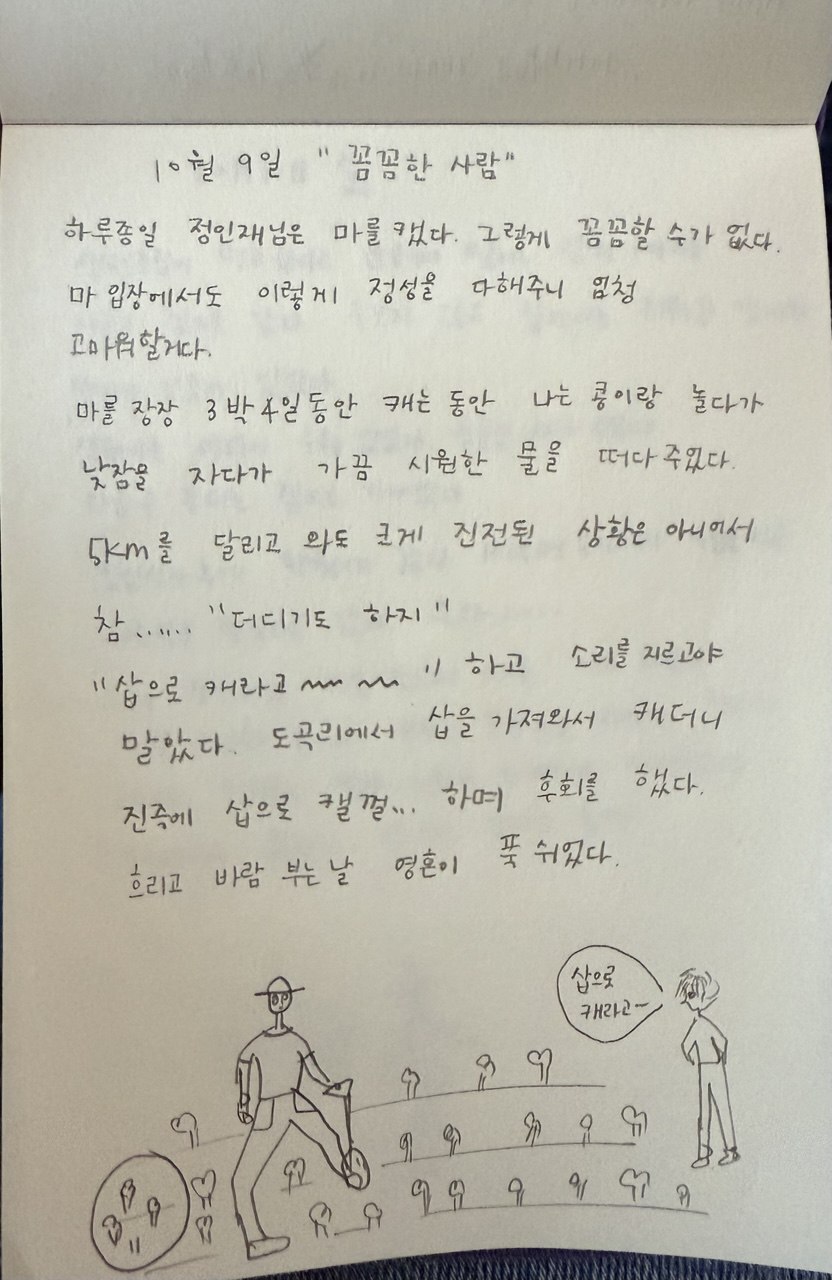 10월 9일 "꼼꼼한 사람"
하루종일 정인재님은 마를 캤다. 그렇게 꼼꼼할 수가 없다.
마 입장에서도 이렇게 정성을 다해주니 엄청
고마워할거다.
마를 장장 3박4일동안 캐는 동안 나는 콩이랑 놀다가
낮잠을 자다가 가끔 시원한 물을 떠다 주었다.
5km를 달리고 와도 크게 진전된 상황은 아니어서
참...... "더디기도 하지"
"삽으로 캐라고~~ ~~" 하고 소리를 지르고야
말았다. 도곡리에서 삽을 가져와서 캐더니
진즉에 삽으로 캘껄... 하며 후회를 했다.
흐리고 바람 부는 날 영혼이 푹 쉬었다.
삽으로
캐라고~